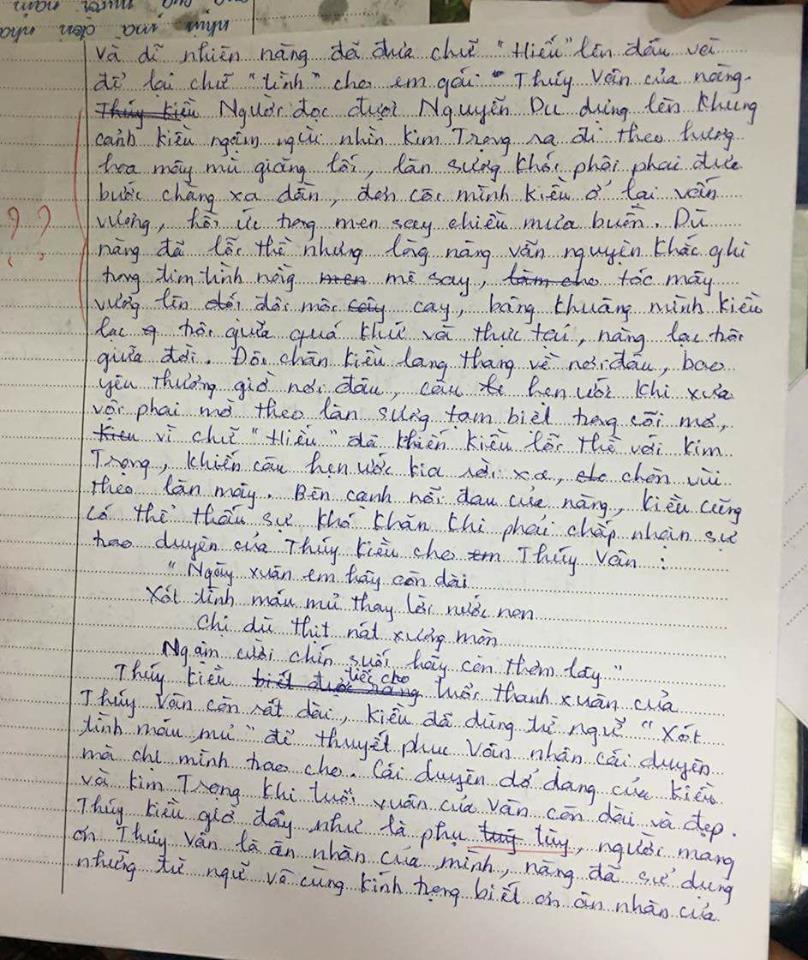 và dĩ nhiên nàng đã đưa chữ "Hiếu" lên đầu và
để lại chữ "tình" cho em gái Thúy Vân của nàng.
Thúy Kiều Người đọc được Nguyễn Du dựng lên khung
cảnh Kiều ngậm ngùi nhìn Kim Trọng ra đi theo hướng
hoa mây mù giăng lối, làn sương khói phôi phai đưa
bước chàng xa dần, đơn côi mình Kiều ở lại vấn
vương, hồi ức trong men say chiều mưa buồn. Dù
nàng đã lỗi thề nhưng lòng nàng vẫn nguyện khắc ghi
trong tim tình nồng men mê say, làm cho tóc mây
vương lên đôi mắt cay, bâng khuâng mình Kiều
lạc trôi giữa quá khứ và thực tại, nàng lạc trôi
giữa đời. Đôi chân Kiều lang thang về nơi đâu, bao
yêu thương giờ nơi đâu, câu hẹn ước khi xưa
vội phai mờ theo làn sương tạm biệt trong cõi mơ,
Kiều vì chữ "Hiếu" đã khiến Kiều lỗi thề với Kim
Trọng, khiến câu hẹn ước kia rời xa, chôn vùi
theo làn mây. Bên cạnh nỗi đau của nàng, Kiều cũng
có thể thấu sự khó khăn khi phải chấp nhận sự
trao duyên của Thúy Kiều cho em Thúy Vân :
"Ngày xuân em hãy còn dài
Xót tình máu mủ thay lời nước non
Chị dù thịt nát xương mòn
Ngậm cười chín suối hãy còn thơm lây"
Thúy Kiều biết được rằng tiếc cho tuổi thanh xuân của
Thúy Vân còn rất dài, Kiều đã dùng từ ngữ "Xót
tình máu mủ" để thuyết phục Vân nhận cái duyên
mà chị mình trao cho. Cái duyên dở dang của Kiều
và Kim Trọng khi tuổi xuân của Vân còn dài và đẹp.
Thúy Kiều giờ đây như là phụ tuỳ tùy, người mang
ơn Thúy Vân là ân nhân của mình, nàng đã sử dụng
những từ ngữ vô cùng kính trọng biết ơn ân nhân của
? ?